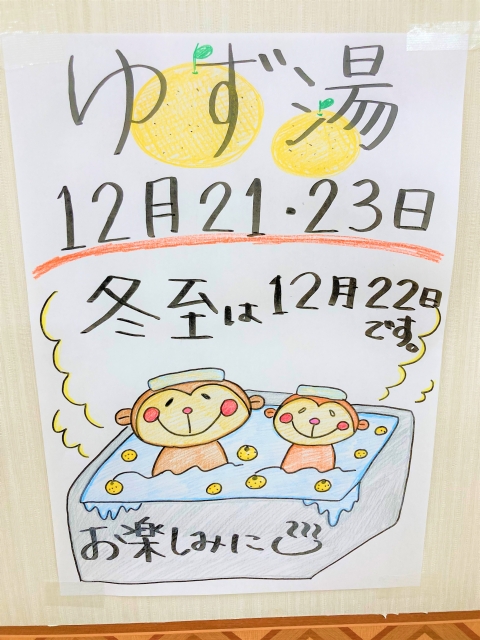 ゆず湯
12月21・23日
冬至は12月22日
です。
お楽しみに♨